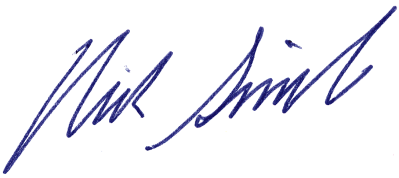 Nick Smith